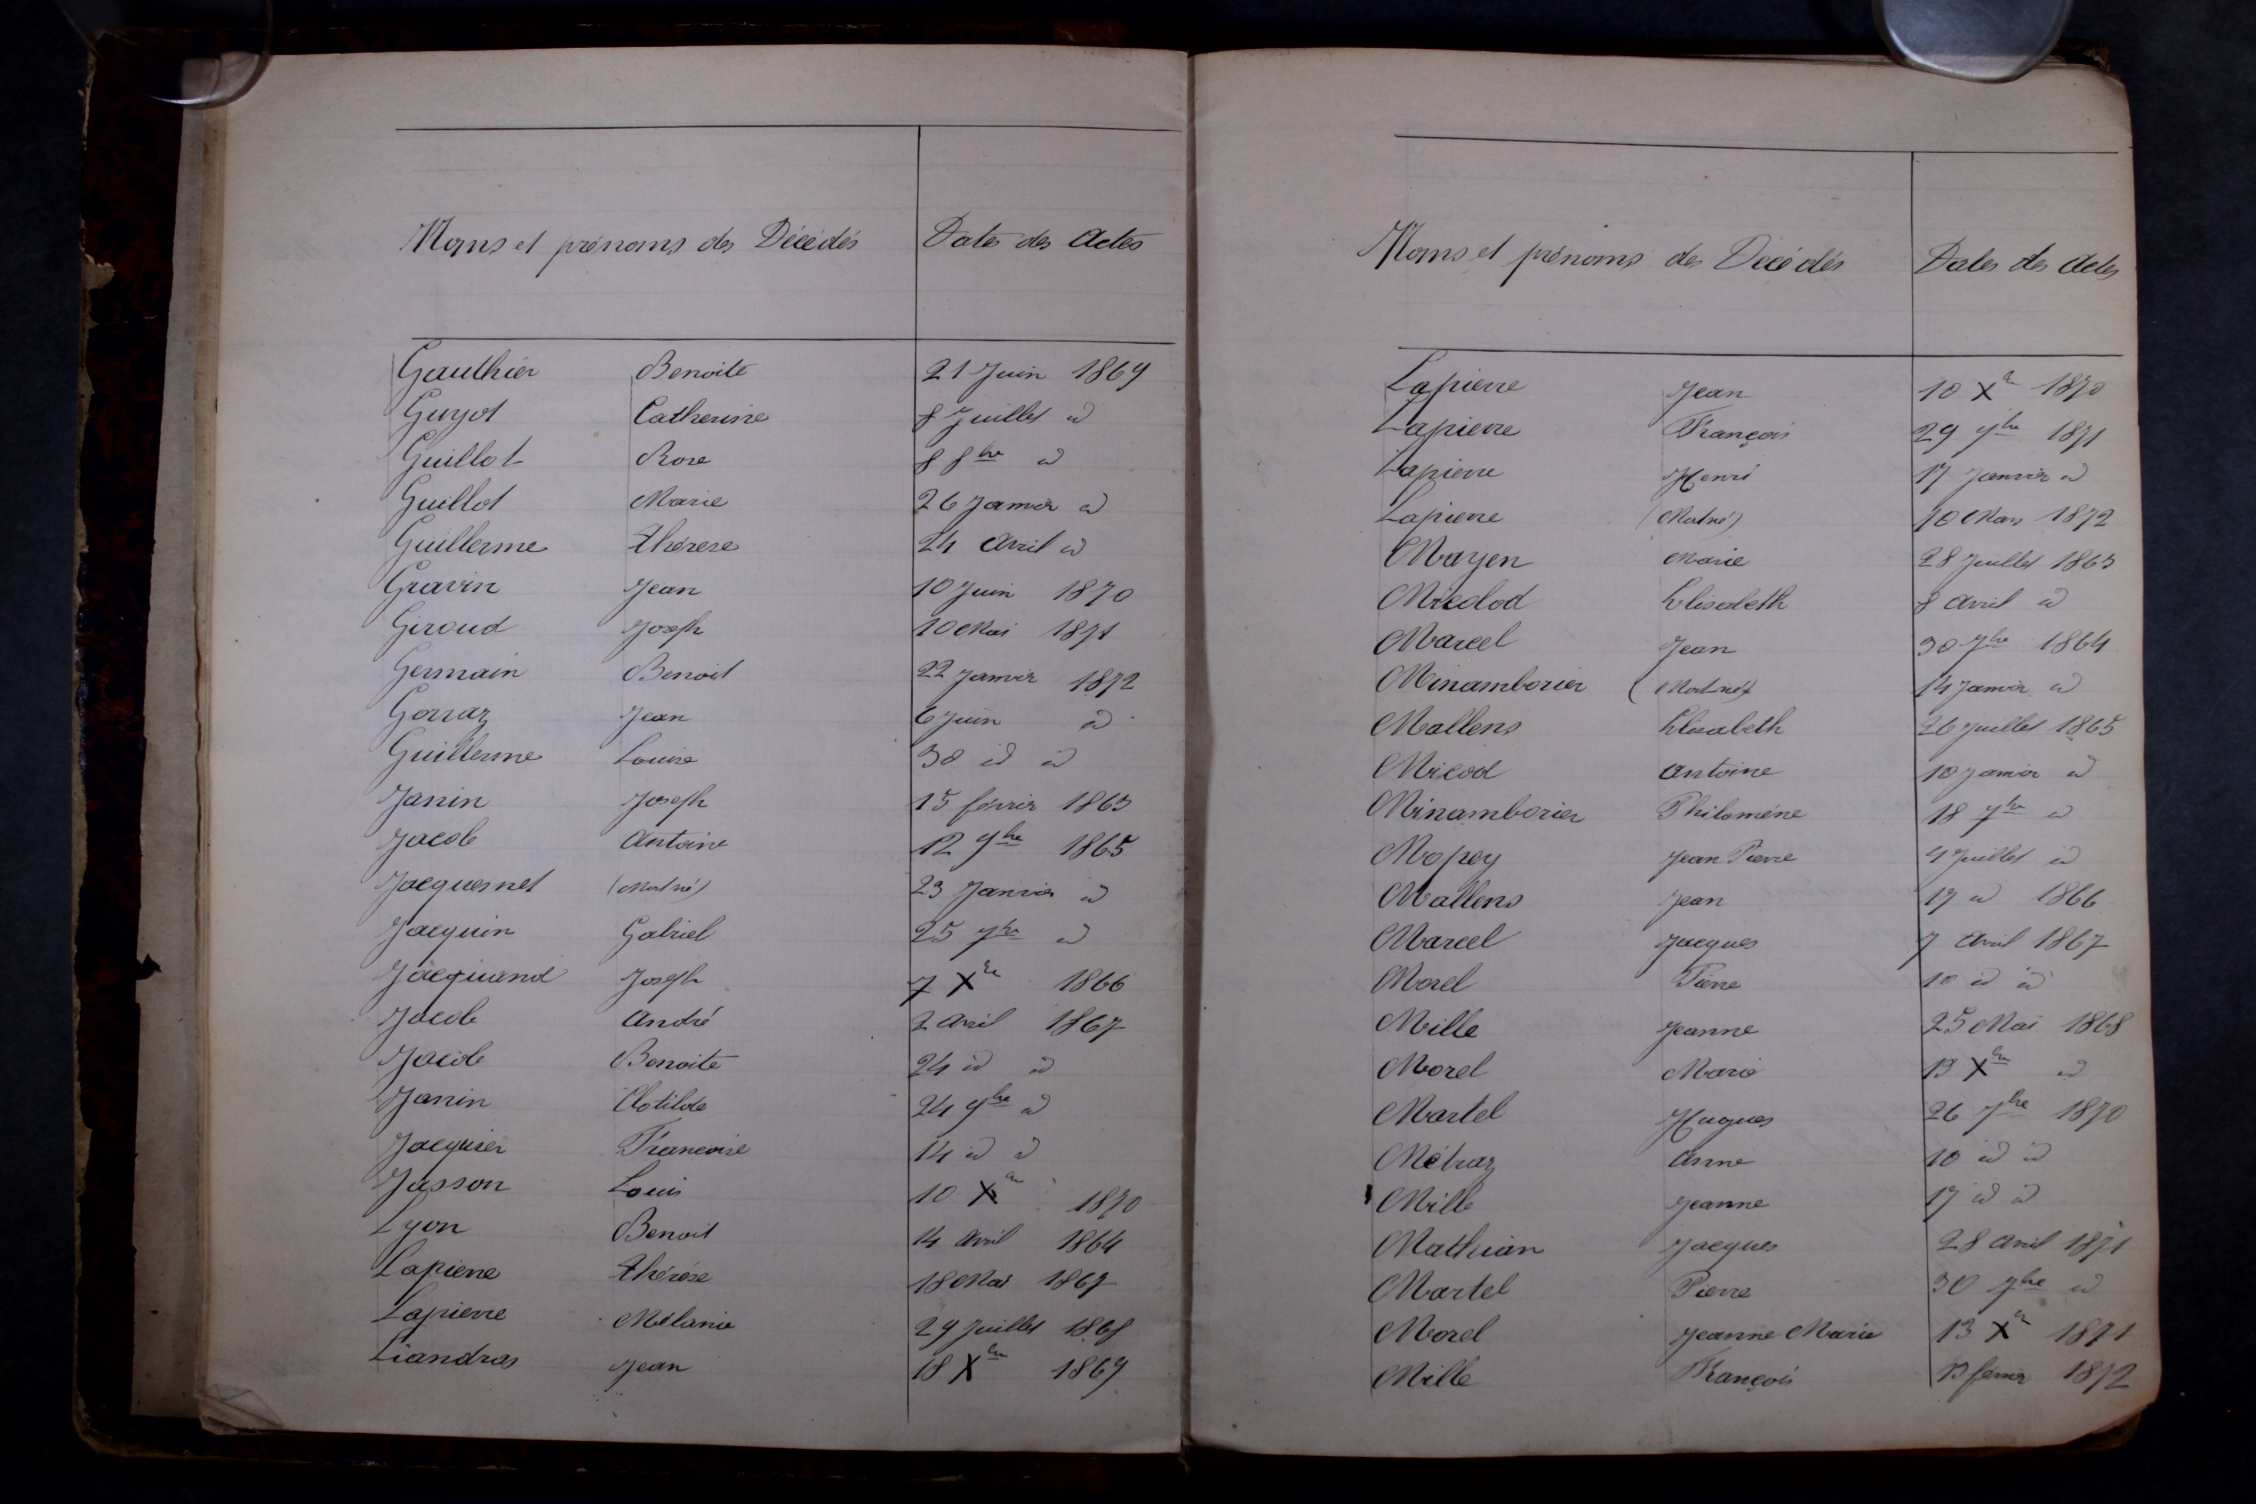 Noms et prénoms des Décédés Dates des Actes
Gauthier Benoite 21 Juin 1869
Guyot Catherine 8 Juillet id
Guillot Rose 8 8bre id
Guillot Marie 26 Janvier id
Guillerme Thérese 24 Avril id
Gravin Jean 10 Juin 1870
Giroud Joseph 10 Mai 1871
Germain Benoit 22 Janvier 1872
Gorraz Jean 6 Juin id
Guillerme Louise 30 id id
Janin Joseph 15 février 1863
Jacob Antoine 12 9bre 1865
Jacquesnet (Mort né) 23 Janvier id
Jacquin Gabriel 25 7bre id
Jacquand Joseph 7 Xbre 1866
Jacob André 2 Avril 1867
Jacob Benoite 24 id id
Janin Clotilde 24 9bre id
Jacquier Francoise 14 id id
Jasson Louis 10 Xbre 1870
Lyon Benoit 14 Avril 1864
Lapierre Thérèse 18 Mai 1867
Lapierre Mélanie 29 Juillet 1868
Liandras Jean 18 Xbre 1869
Noms et prénoms des Décédés Dates des Actes
Lapierre Jean 10 Xbre 1870
Lapierre François 29 9bre 1871
Lapierre Henri 17 Janvier id
Lapierre (Mort né) 10 Mars 1872
Mayen Marie 28 Juillet 1863
Micolod Elisabeth 8 Avril id
Marcel Jean 30 7bre 1864
Minamborier (Mort né) 14 Janvier id
Mallens Elisabeth 26 Juillet 1865
Micod Antoine 10 Janvier id
Minamborier Philomène 18 7bre id
Mopey Jean Pierre 4 Juillet id
Mallens Jean 17 id 1866
Marcel Jacques 7 Avril 1867
Morel Pierre 10 id id
Mille Jeanne 25 Mai 1868
Morel Marie 13 Xbre id
Martel Hugues 26 7bre 1870
Métraz Anne 10 id id
Mille Jeanne 17 id id
Mathian Jacques 28 Avril 1871
Martel Pierre 30 9bre id
Morel Jeanne Marie 13 Xbre 1871
Mille François février 1872